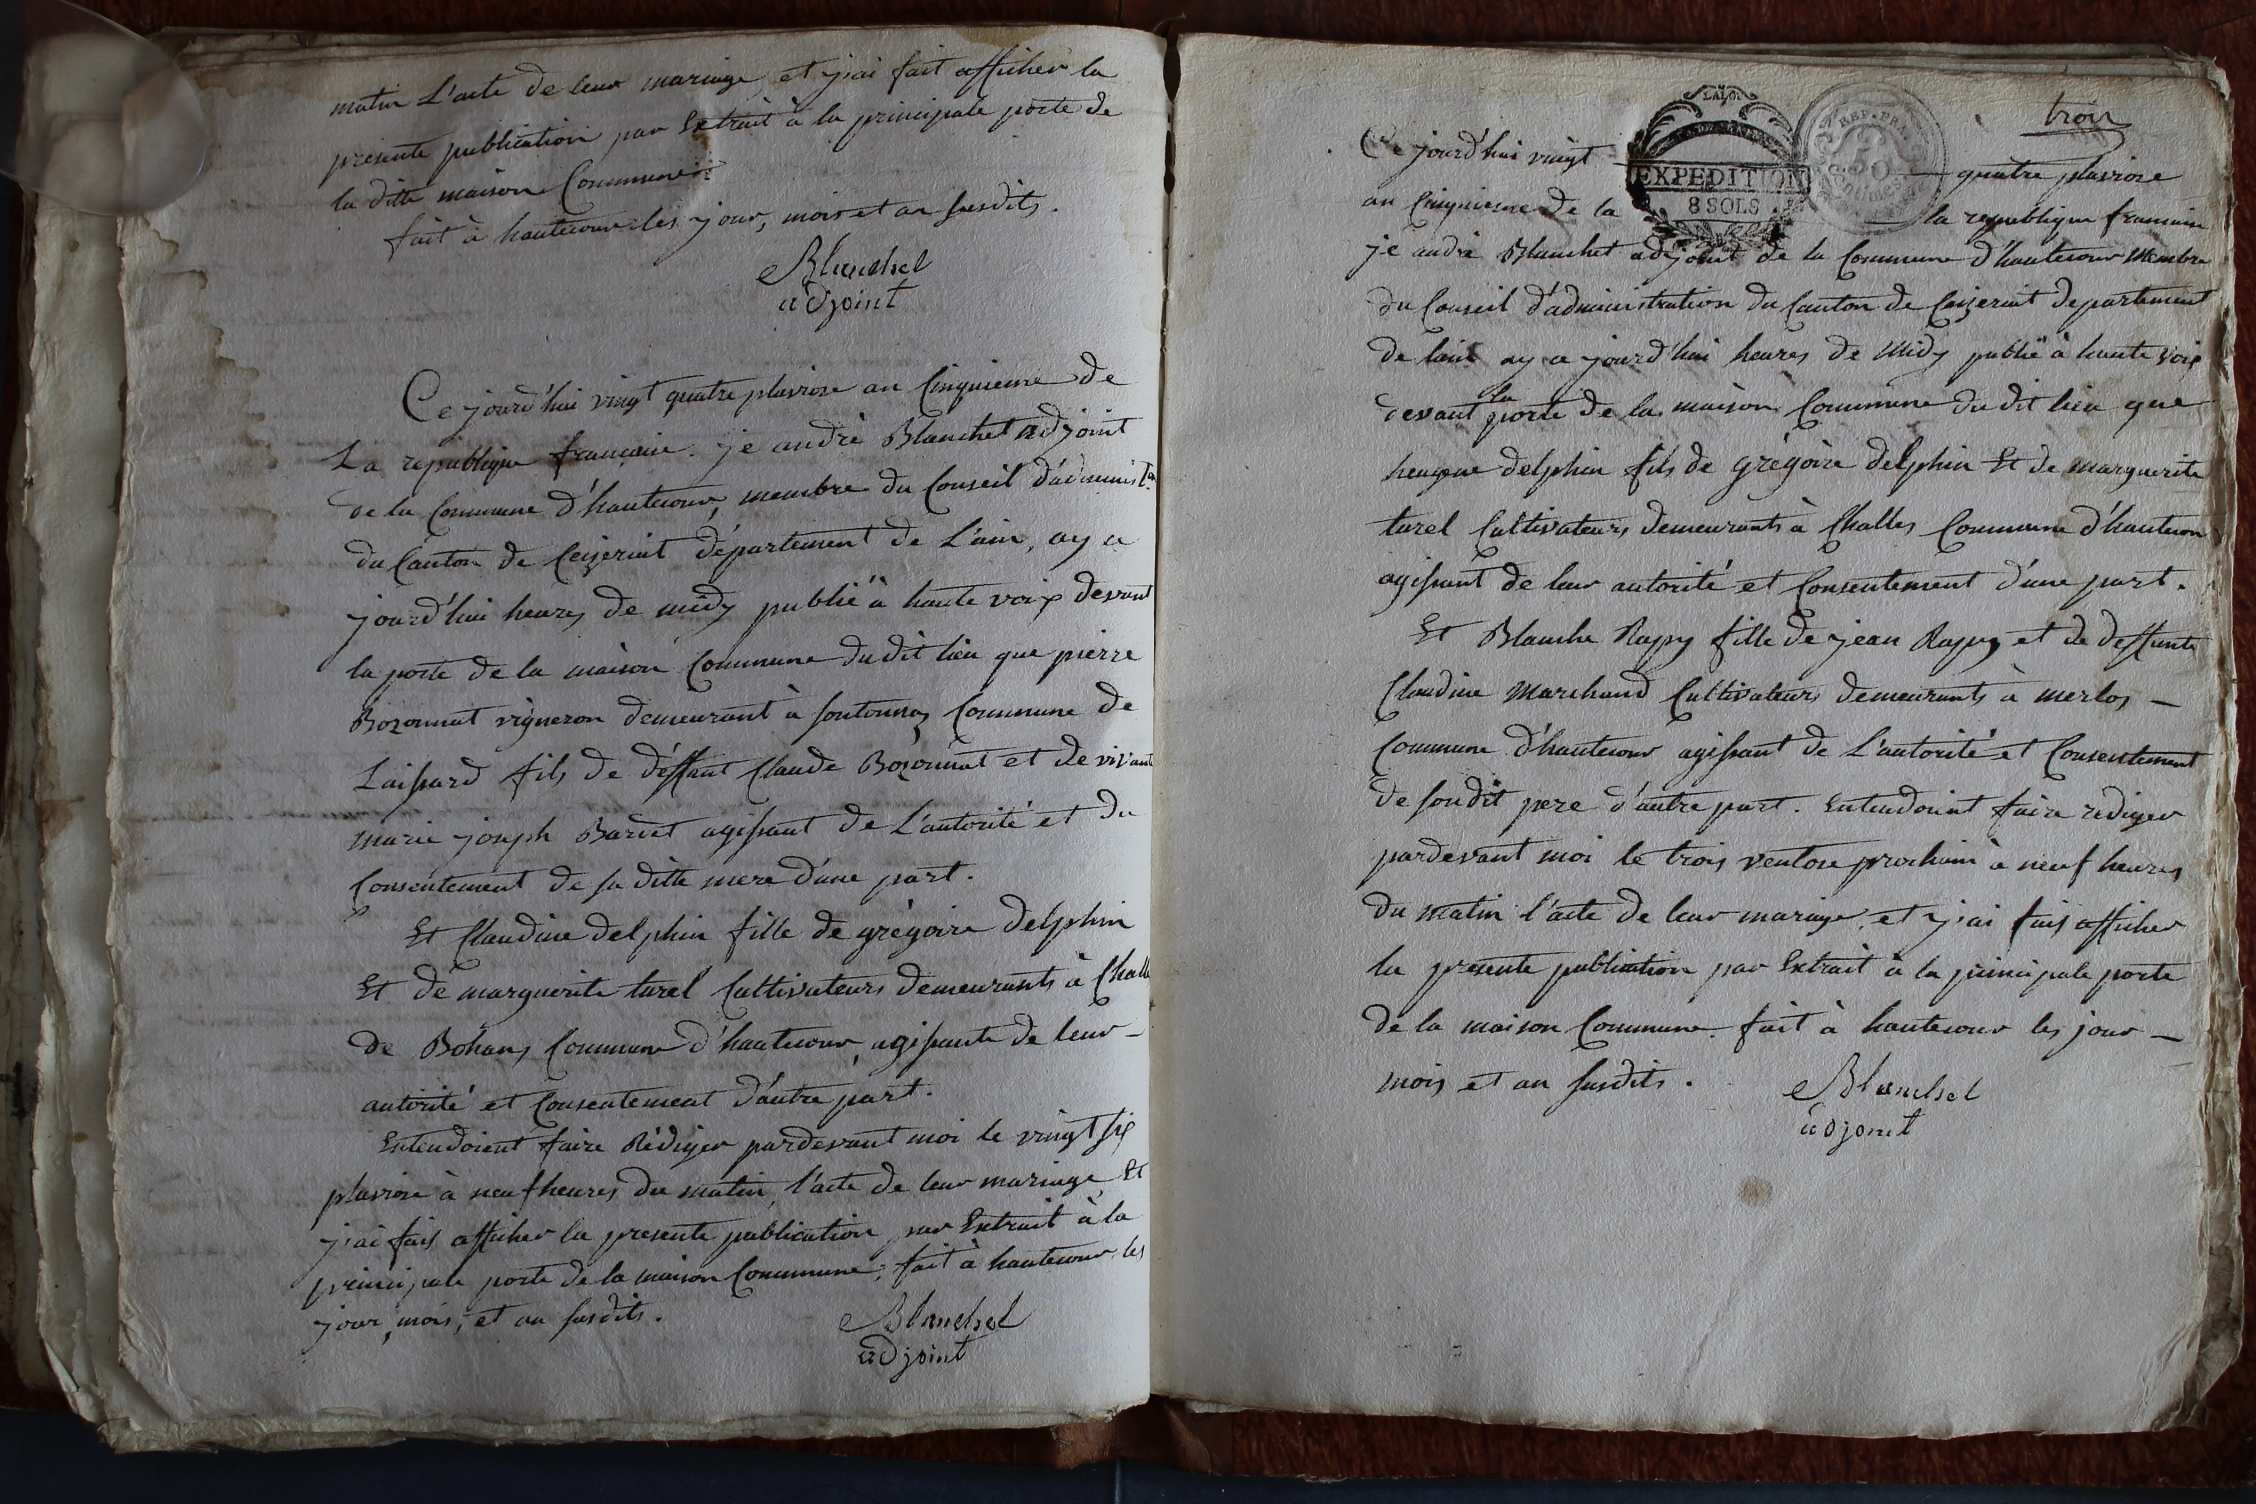 matin L'acte de leur mariage, et j'ai fait afficher la
presente publication par Extrait à la principale porte de
la ditte maison Commune
fait à hautecour les jour, mois et an susdits.
Blanchet
adjoint
Ce jourd'hui vingt quatre pluviose an Cinquieme de
La republique francaise. je andré Blanchet adjoint
de la Commune d'hautecour, membre du Conseil d'administon
du Canton de Ceizeriat département de L'ain, ay ce
jourd'hui heures de midy publié à haute voix devant
la porte de la maison Commune du dit lieu que pierre
Bozonnat vigneron demeurant à soutonnas Commune de
Laissard fils de déffunt Claude Bozonnat et de vivante
marie joseph Bardet agissant de L'autorité et du
Consentement de sa ditte mere d'une part.
Et Claudine delphin fille de grégoire delphin
Et de marguerite turel Cultivateurs demeurants à Challe
de Bohans Commune d'hautecour, agissante de leur
autorité et Consentement d'autre part.
Entendoient faire Rédiger pardevant moi le vingt six
pluviose à neuf heures du matin, l'acte de leur mariage Et
j'ai fais afficher la presente publication par Extrait à la
principale porte de la maison Commune, fait à hautecour les
jour, mois, et an susdits.
Blanchet
adjoint
trois
LA LOI
REP. FRA.
50
Centimes
EXPEDITION
8 SOLS
Ce jourd'hui vingt quatre pluviose
an Cinquieme de la la republique francaise
je andré Blanchet adjoint de la Commune d'hautecour Membre
du Conseil d'administration du Canton de Ceizeriat departement
de lain ay ce jourd'hui heures de Midy publié à haute voix
devant la porte de la maison Commune du dit lieu que
delphin fils de grégoire delphin Et de marguerite
turel Cultivateurs demeurants à Challes Commune d'hautecour
agissant de leur autorité et Consentement d'une part.
Et Blanche Rappy fille de jean Rappy et de deffunte
Claudine Marchand Cultivateurs demeurants à merlos
Commune d'hautecour agissant de L'autorité et Consentement
de son dit pere d'autre part. Entendoient faire rediger
pardevant moi le trois ventose prochain à neuf heures
du matin l'acte de leur mariage, et j'ai fais afficher
la presente publication par Extrait à la principale porte
de la maison Commune. fait à hautecour les jour
mois et an susdits.
Blanchet
adjoint